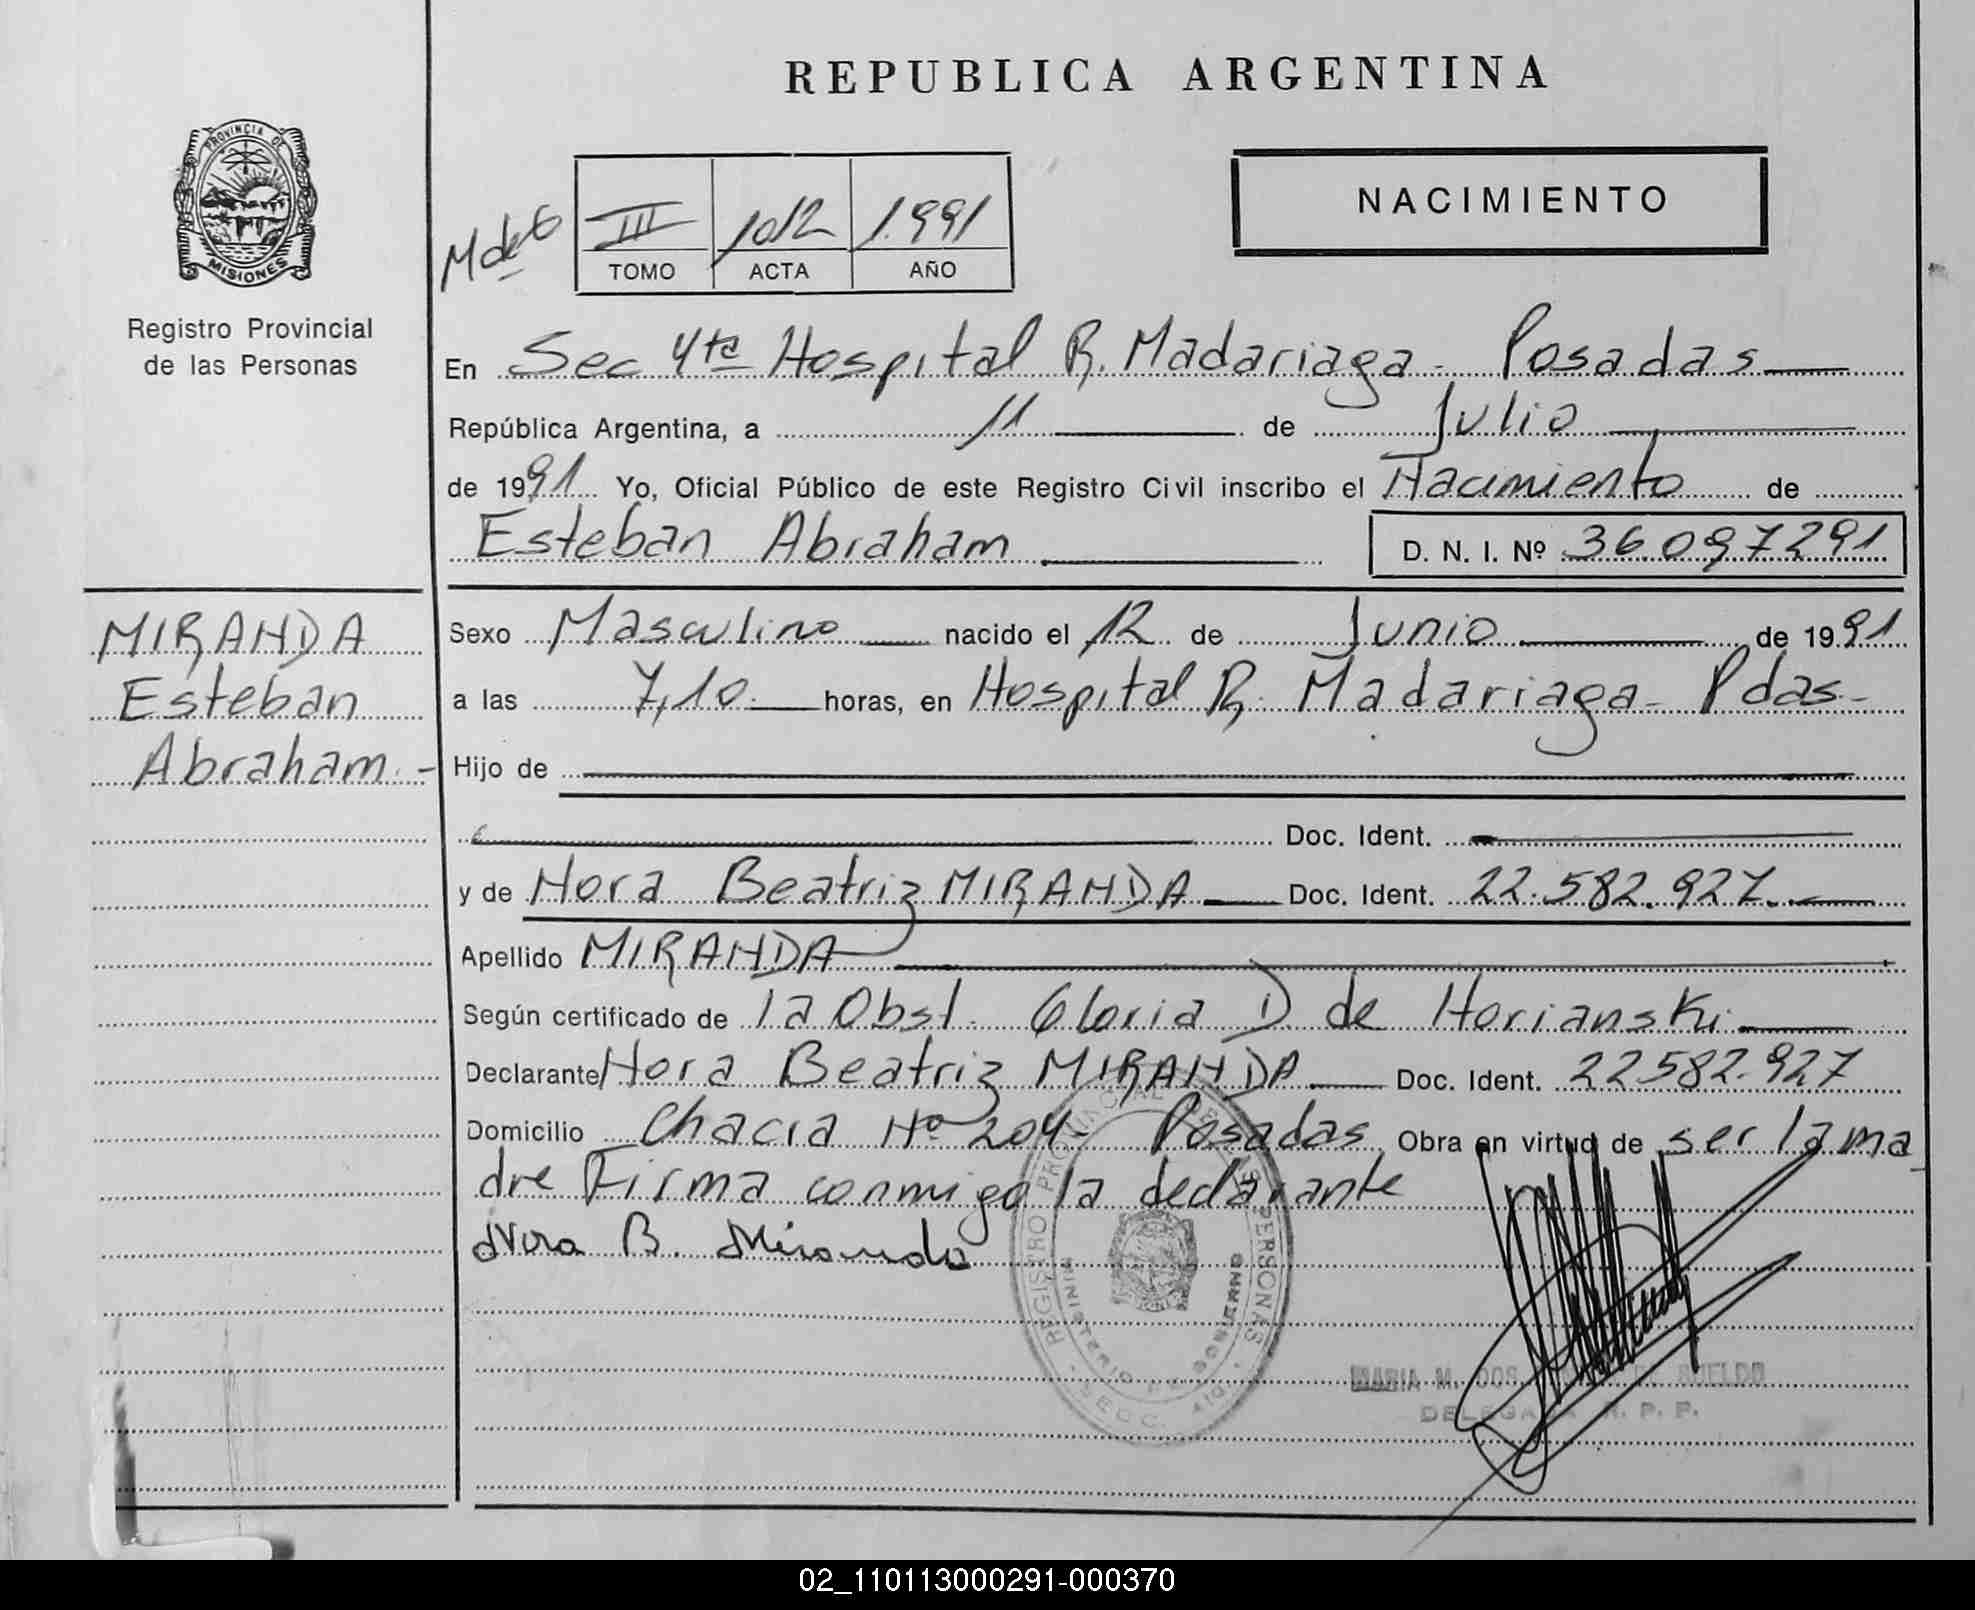 REPUBLICA ARGENTINA
PROVINCIA DE
MISIONES
Registro Provincial
de las Personas
NACIMIENTO
M de G
III 1012 1.991
TOMO ACTA AÑO
En Sec 4ta Hospital R. Madariaga - Posadas
República Argentina, a 11 de Julio
de 1991 Yo, Oficial Público de este Registro Civil inscribo el Nacimiento de
Esteban Abraham D. N. I. Nº 36.097291
MIRANDA
Esteban
Abraham.-
Sexo Masculino nacido el 12 de Junio de 1991
a las 7,10 horas, en Hospital R. Madariaga - Pdas-
Hijo de
Doc. Ident.
y de Nora Beatriz MIRANDA Doc. Ident. 22.582.927.
Apellido MIRANDA
Según certificado de la Obst. Gloria D de Horianski
Declarante Nora Beatriz MIRANDA Doc. Ident. 22582.927
Domicilio Chacra Nº 204- Posadas Obra en virtud de ser la ma
dre Firma conmigo la declarante
Nora B. Miranda
REGISTRO PROVINCIAL DE LAS PERSONAS
MINISTERIO DE GOBIERNO
SECC. 4ta
MARIA M. DOS
DELEGADA R. P. P.
02_110113000291-000370